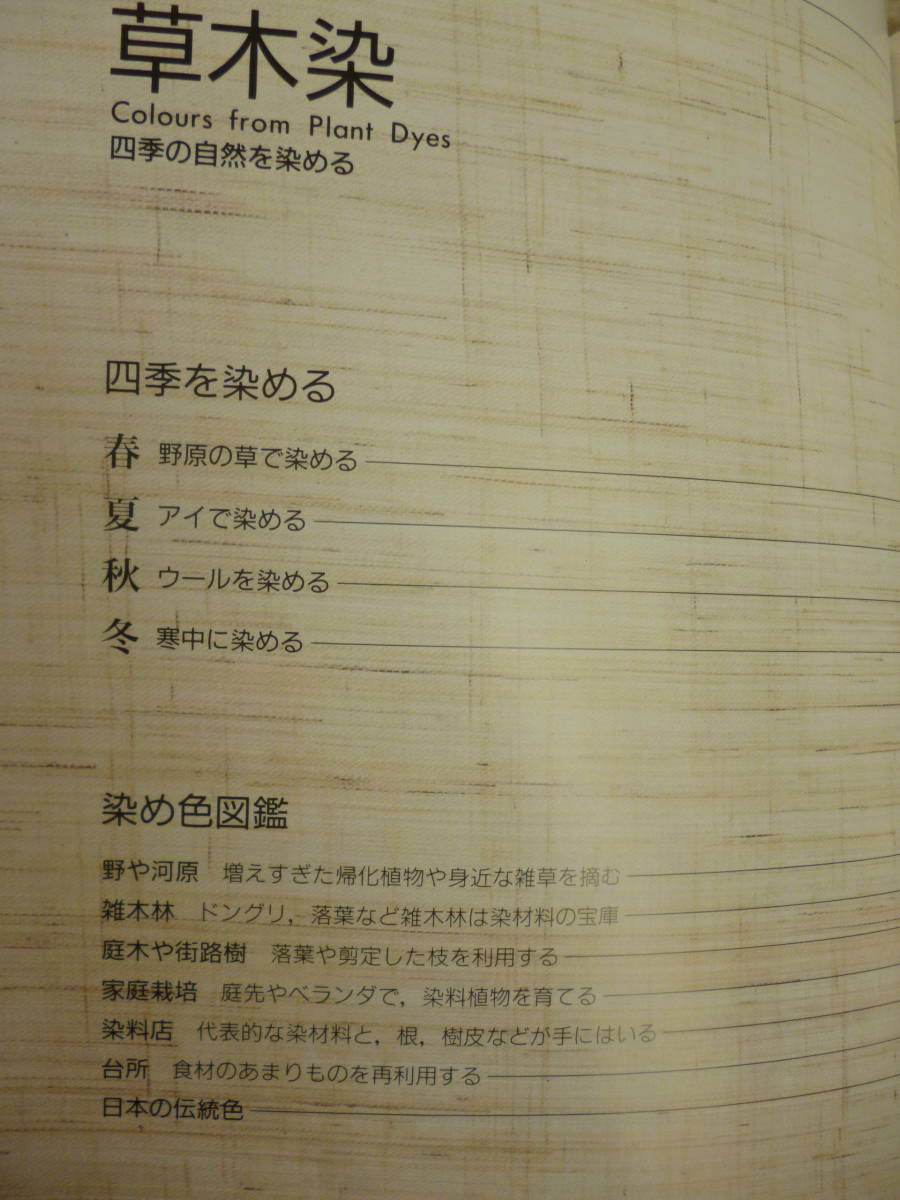 草木染
Colours from Plant Dyes
四季の自然を染める
四季を染める
春 野原の草で染める
夏 アイで染める
秋 ウールを染める
冬 寒中に染める
染め色図鑑
野や河原 増えすぎた帰化植物や身近な雑草を摘む
雑木林 ドングリ，落葉など雑木林は染材料の宝庫
庭木や街路樹 落葉や剪定した枝を利用する
家庭栽培 庭先やベランダで，染料植物を育てる
染料店 代表的な染材料と，根，樹皮などが手にはいる
台所 食材のあまりものを再利用する
日本の伝統色